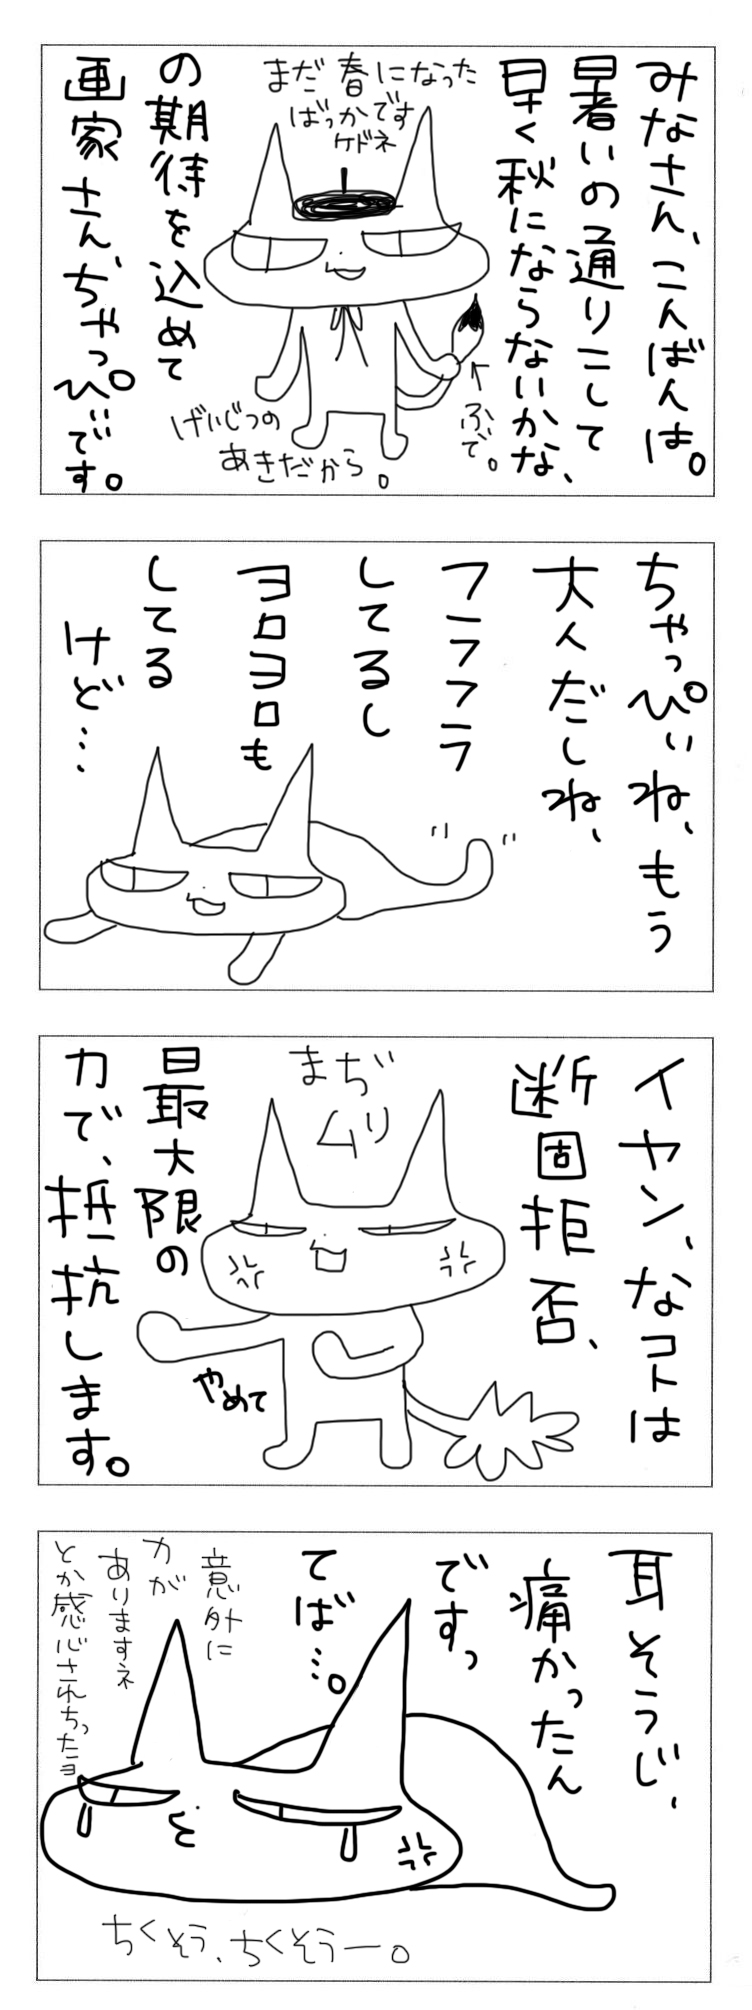 みなさん、こんばんは。
暑いの通りこして
早く秋にならないかな、
の期待を込めて
画家さん、ぢゃっぴぃです。
まだ春になった
ばっかです
ケドネ
↑ふで。
げいじつの
あきだから。
ちゃっぴぃね、もう
大人だしね、
フラフラ
してるし
ヨロヨロも
してる
けど…
イヤン、なコトは
断固拒否、
最大限の
力で、抵抗します。
まぢ
ムリ
やめて
耳そうじ、
痛かったん
ですっ
てば…。
意外に
力が
ありますネ
とか感心されちったヨ
ちくそう、ちくそうー。